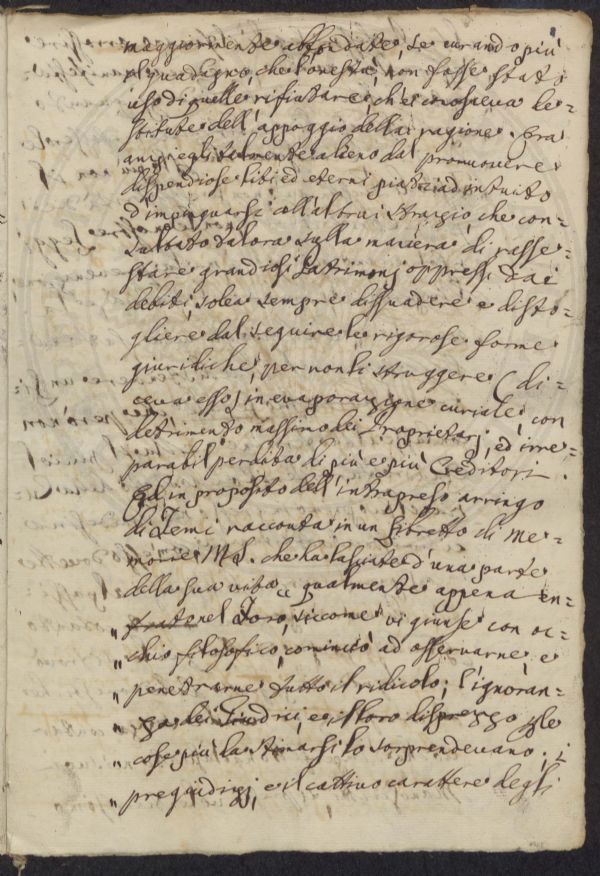 maggiormente affidate, se curando più
il guadagno, che l'onestà non fosse stato
uso di quelle rifiutare ch'ei conosceva de=
stitute dell'appoggio della ragione. Era
anzi egli talmente alieno dal promuovere
dispendiose liti ed eterni piati ad intuito
d'impinguarsi coll'altrui strazio, che con=
sultato talora sulla maniera di rasse=
stare grandiosi Patrimonj oppressi dai
debiti, solea sempre dissuadere e disto=
gliere dal seguire le rigorose forme
giuridiche, per non li struggere (di=
ceva esso) in evaporazione curiale, con
detrimento massimo dei Proprietarj, ed irre=
parabil perdita di più e più Creditori.
Ed in proposito dell'intrapreso arringo
di Temi racconta in un Libretto di Me=
morie MS. che ha lasciate d'una parte
della sua vita „ qualmente appena en=
„ trato nel Foro, siccome vi giunse con oc=
„ chio filosofico, cominciò ad osservarne, e
„ penetrarne tutto il ridicolo; l'ignoran=
„ za dei Giudici, e il loro disprezzo per le
„ cose più da stimarsi lo sorprendevano; i
„ pregiudizj, e il cattivo carattere degli